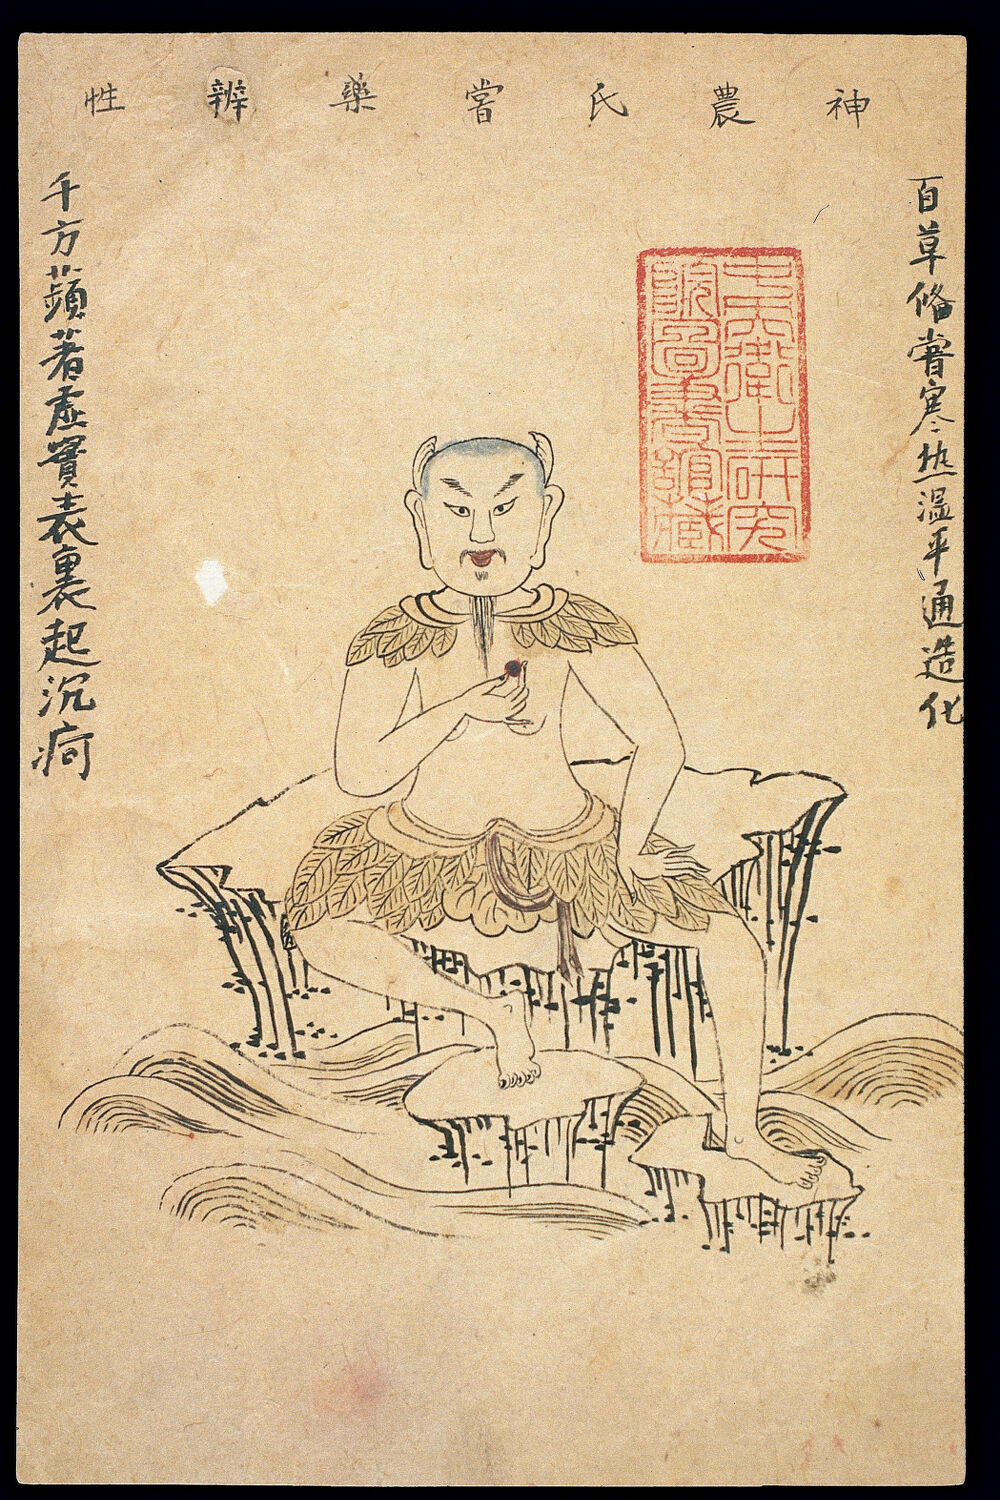 神農氏嘗藥辨性
百草俻嘗寒热温平通造化
千方蘋著虛實表裏起沉疴
中央衛生研究
院圖書館藏